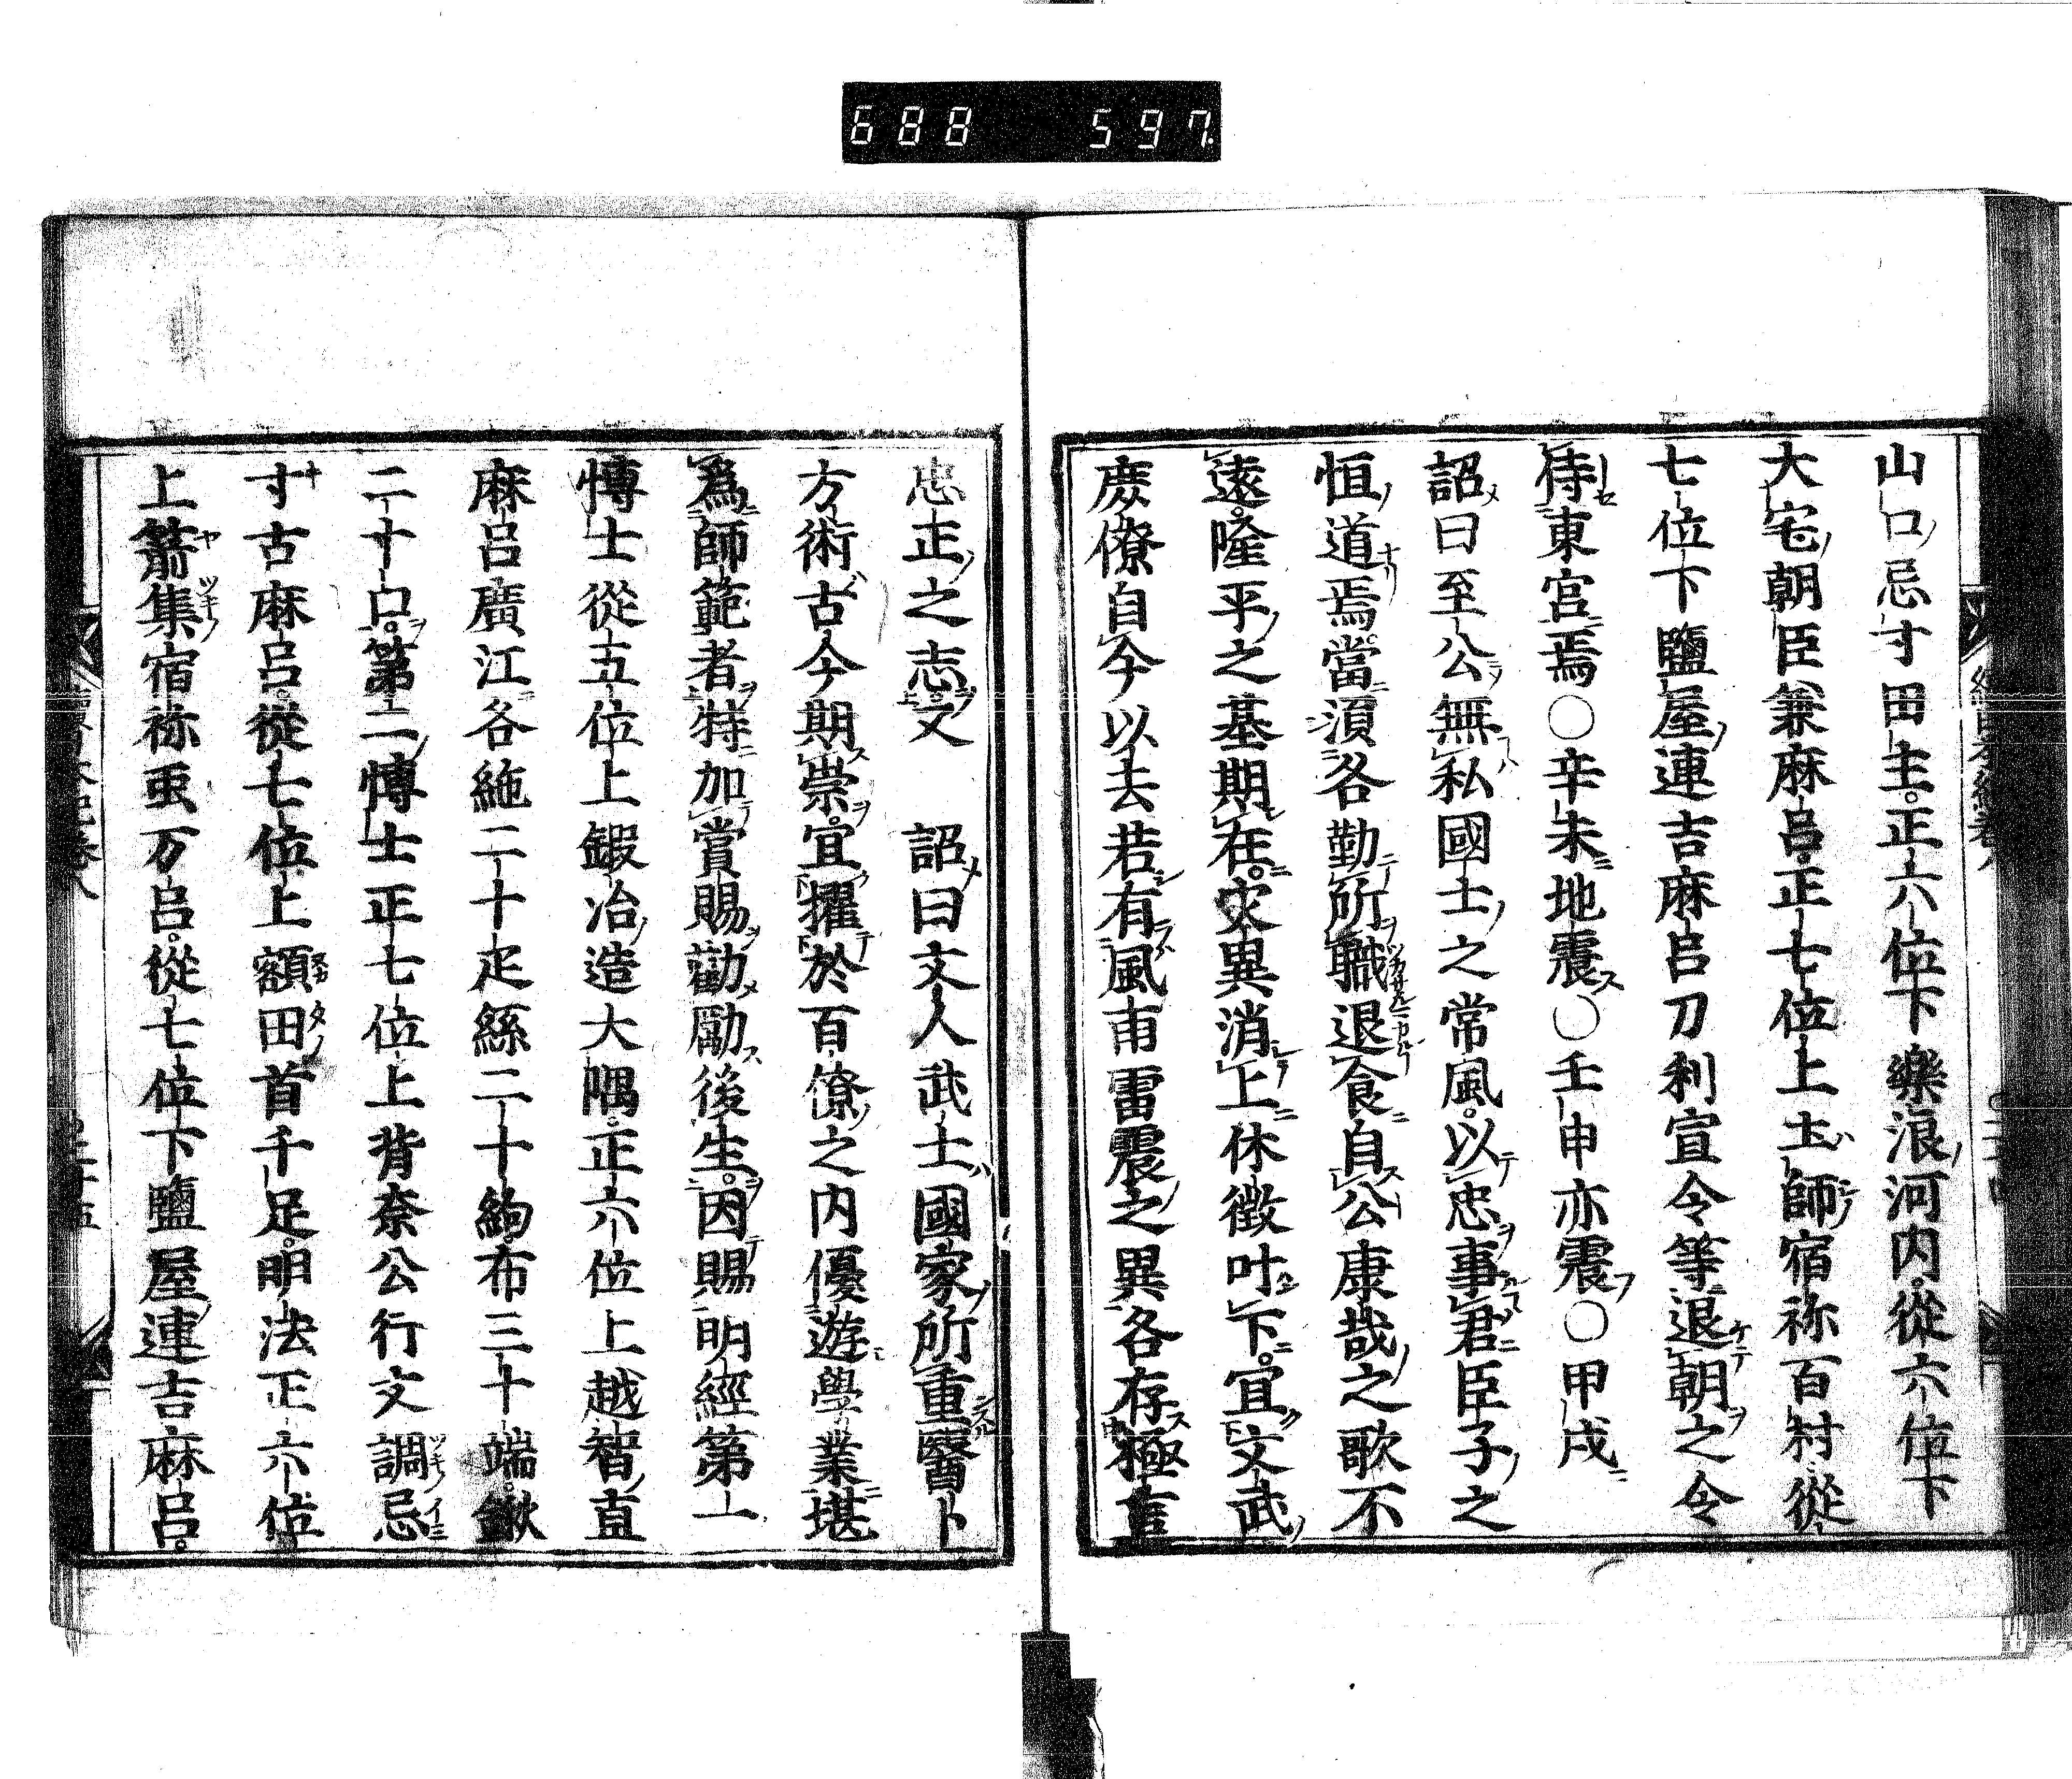 688 597
山口忌寸田主。正六位下樂浪河内。從六位下
大宅朝臣兼麻呂。正七位上土師宿祢百村。從
七位下鹽屋連吉麻呂刀利宣令等退朝之令
侍東宮焉○辛未地震○壬申亦震○甲戌
詔曰至公無私國士之常風。以忠事君臣子之
恒道焉。當湏各勤所職退食自公康哉之歌不
遠。隆平之基期在。灾異消上休徵叶下。宜文武
庶僚自今以去若有風雨雷震之異各存極言
忠正之志文　詔曰文人武士國家所重醫卜
方術古今期崇。宜擢於百僚之内優遊學業堪
爲師範者特加賞賜勸勵後生。因賜明經第一
愽士從五位上鍜冶造大隅。正六位上越智直
麻呂廣江各絁二十疋絲二十絇布三十端。鍬
二十口。第二愽士正七位上背奈公行文調忌
寸古麻呂。從七位上額田首千足。明法正六位
上箭集宿祢䖝万呂。從七位下鹽屋連吉麻呂。